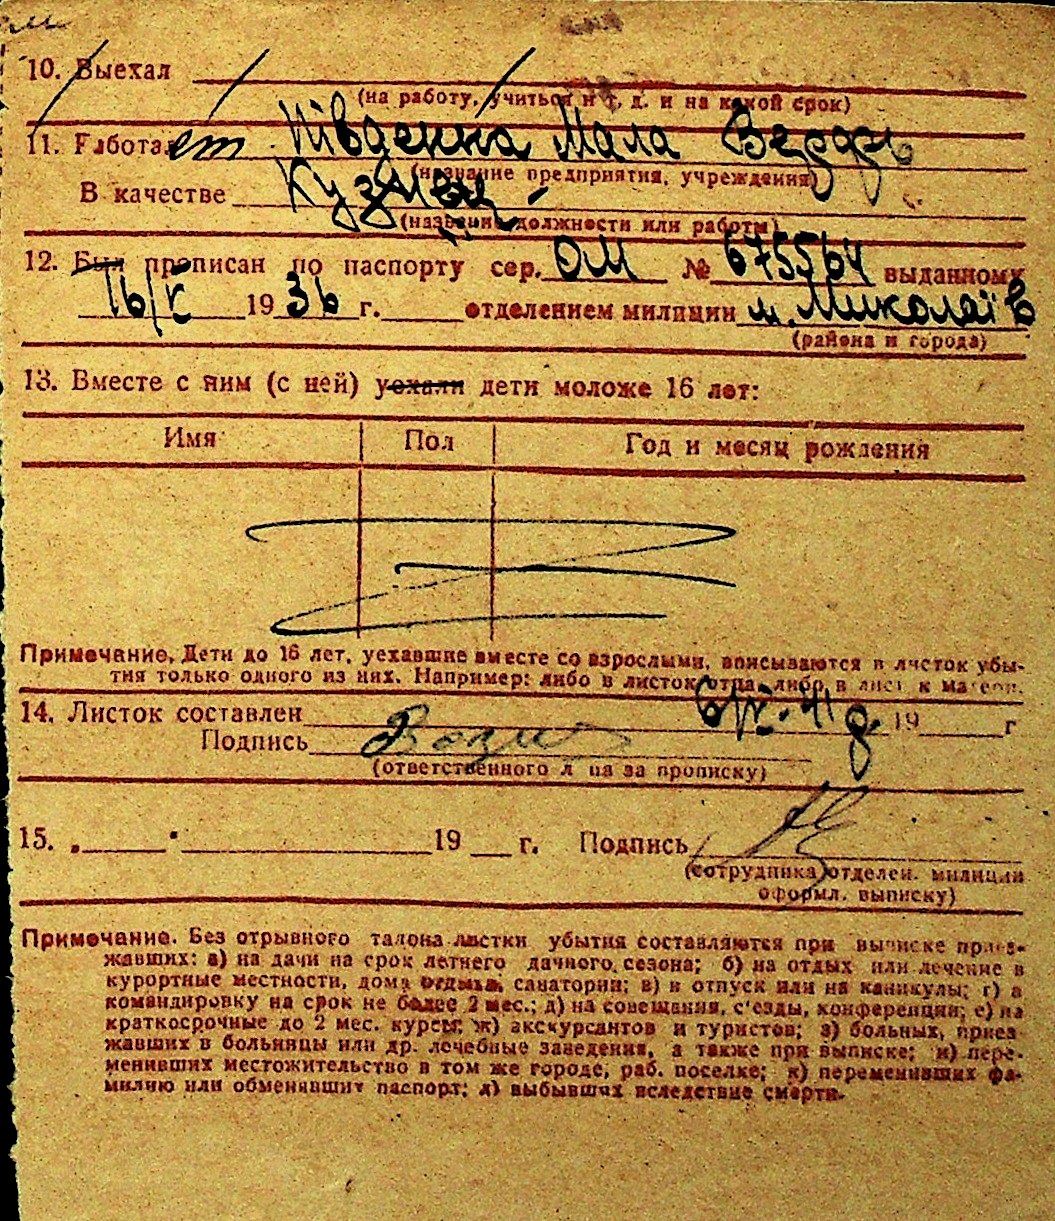 10. Выехал
(на работу, учиться и т. д. и на какой срок)
11. Работает Південна Мала Верфь
(название предприятия, учреждения)
В качестве Кузнец -
(название должности или работы)
12. Был прописан по паспорту сер. ОМ № 675564 выданному
16/X 1936 г. отделением милиции м. Миколаїв
(района и города)
13. Вместе с ним (с ней) уехали дети моложе 16 лет:
Имя Пол Год и месяц рождения
Примечание. Дети до 16 лет, уехавшие вместе со взрослыми, вписываются в листок убы-
тия только одного из них. Например: либо в листок отца, либо в лист к матери.
14. Листок составлен 41 р. 19 г
Подпись
(ответственного л ца за прописку)
15. „ " 19 г. Подпись
(сотрудника отделен. милиции
оформл. выписку)
Примечание. Без отрывного талона листки убытия составляются при выписке приез-
жавших: а) на дачи на срок летнего дачного сезона; б) на отдых или лечение в
курортные местности, дома отдыха, санатории; в) в отпуск или на каникулы; г) в
командировку на срок не более 2 мес.; д) на совещания, с'езды, конференции; е) на
краткосрочные до 2 мес. курсы; ж) экскурсантов и туристов; з) больных, приез-
жавших в больницы или др. лечебные заведения, а также при выписке; и) пере-
менивших местожительство в том же городе, раб. поселке; к) переменивших фа-
милию или обменявших паспорт; л) выбывших вследствие смерти.